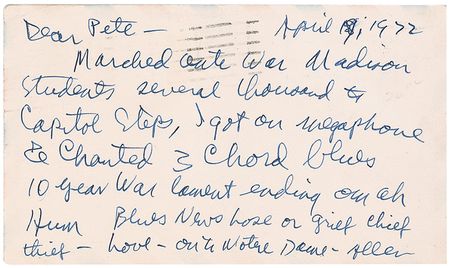 Dear Pete — April 9, 1972
Marched anti War Madison
students several thousand to
Capitol Steps, I got on megaphone
& Chanted 3 Chord blues
10 year War lament ending om ah
Hum Blues News or grief chief
thief — Love — on to Notre Dame — Allen